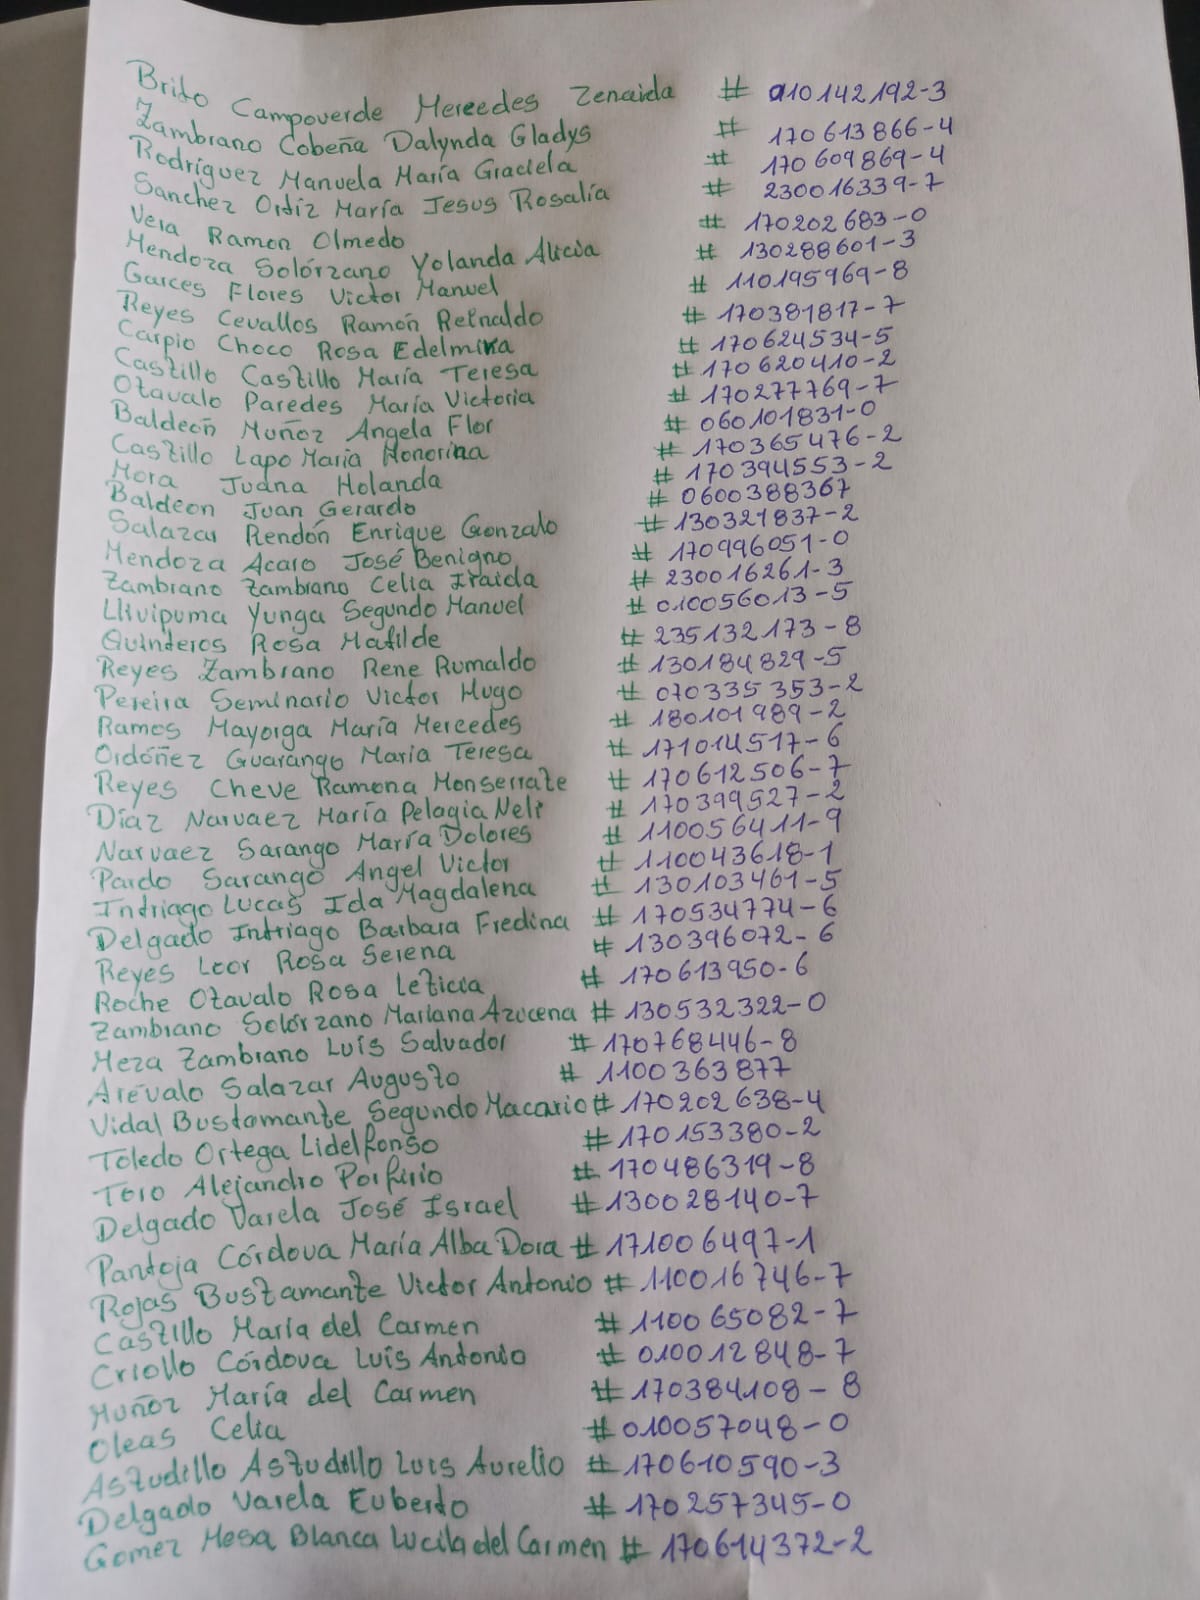 Brito Campoverde Mercedes Zenaida # 010142192-3
Zambrano Cobeña Dalynda Gladys # 170613866-4
Rodríguez Manuela María Graciela # 170609869-4
Sanchez Ortíz María Jesus Rosalía # 230016339-7
Vera Ramon Olmedo # 170202683-0
Mendoza Solórzano Yolanda Alicia # 130288601-3
Garces Flores Victor Manuel # 110195969-8
Reyes Cevallos Ramón Reinaldo # 170381817-7
Carpio Choco Rosa Edelmira # 170624534-5
Castillo Castillo María Teresa # 170620410-2
Otavalo Paredes María Victoria # 170277769-7
Baldeón Muñoz Angela Flor # 060101831-0
Castillo Lapo Maria Honorina # 170365476-2
Mora Juana Holanda # 170394553-2
Baldeon Juan Gerardo # 0600388367
Salazar Rendón Enrique Gonzalo # 130321837-2
Mendoza Acaro José Benigno # 170996051-0
Zambrano Zambrano Celia Iraida # 230016261-3
Llivipuma Yunga Segundo Manuel # 010056013-5
Quinteros Rosa Matilde # 235132173-8
Reyes Zambrano Rene Rumaldo # 130184829-5
Pereira Seminario Victor Hugo # 070335353-2
Ramos Mayorga María Mercedes # 180101989-2
Ordóñez Guarango Maria Teresa # 171014517-6
Reyes Cheve Ramona Monserrate # 170612506-7
Díaz Narvaez María Pelagia Neli # 170399527-2
Narvaez Sarango María Dolores # 110056411-9
Pardo Sarango Angel Victor # 110043618-1
Intriago Lucas Ida Magdalena # 130103461-5
Delgado Intriago Barbara Fredina # 170534774-6
Reyes Loor Rosa Serena # 130396072-6
Roche Otavalo Rosa Leticia # 170613950-6
Zambrano Solórzano Mariana Azucena # 130532322-0
Meza Zambrano Luís Salvador # 170768446-8
Arévalo Salazar Augusto # 1100363877
Vidal Bustamante Segundo Macario # 170202638-4
Toledo Ortega Lidelfonso # 170153380-2
Toro Alejandro Porfirio # 170486319-8
Delgado Varela José Israel # 130028140-7
Pantoja Córdova María Alba Dora # 171006497-1
Rojas Bustamante Victor Antonio # 110016746-7
Castillo María del Carmen # 110065082-7
Criollo Córdova Luís Antonio # 010012848-7
Muñoz María del Carmen # 170384108-8
Oleas Celia # 010057048-0
Astudillo Astudillo Luis Aurelio # 170610590-3
Delgado Varela Euberto # 170257345-0
Gomez Mesa Blanca Lucila del Carmen # 170614372-2